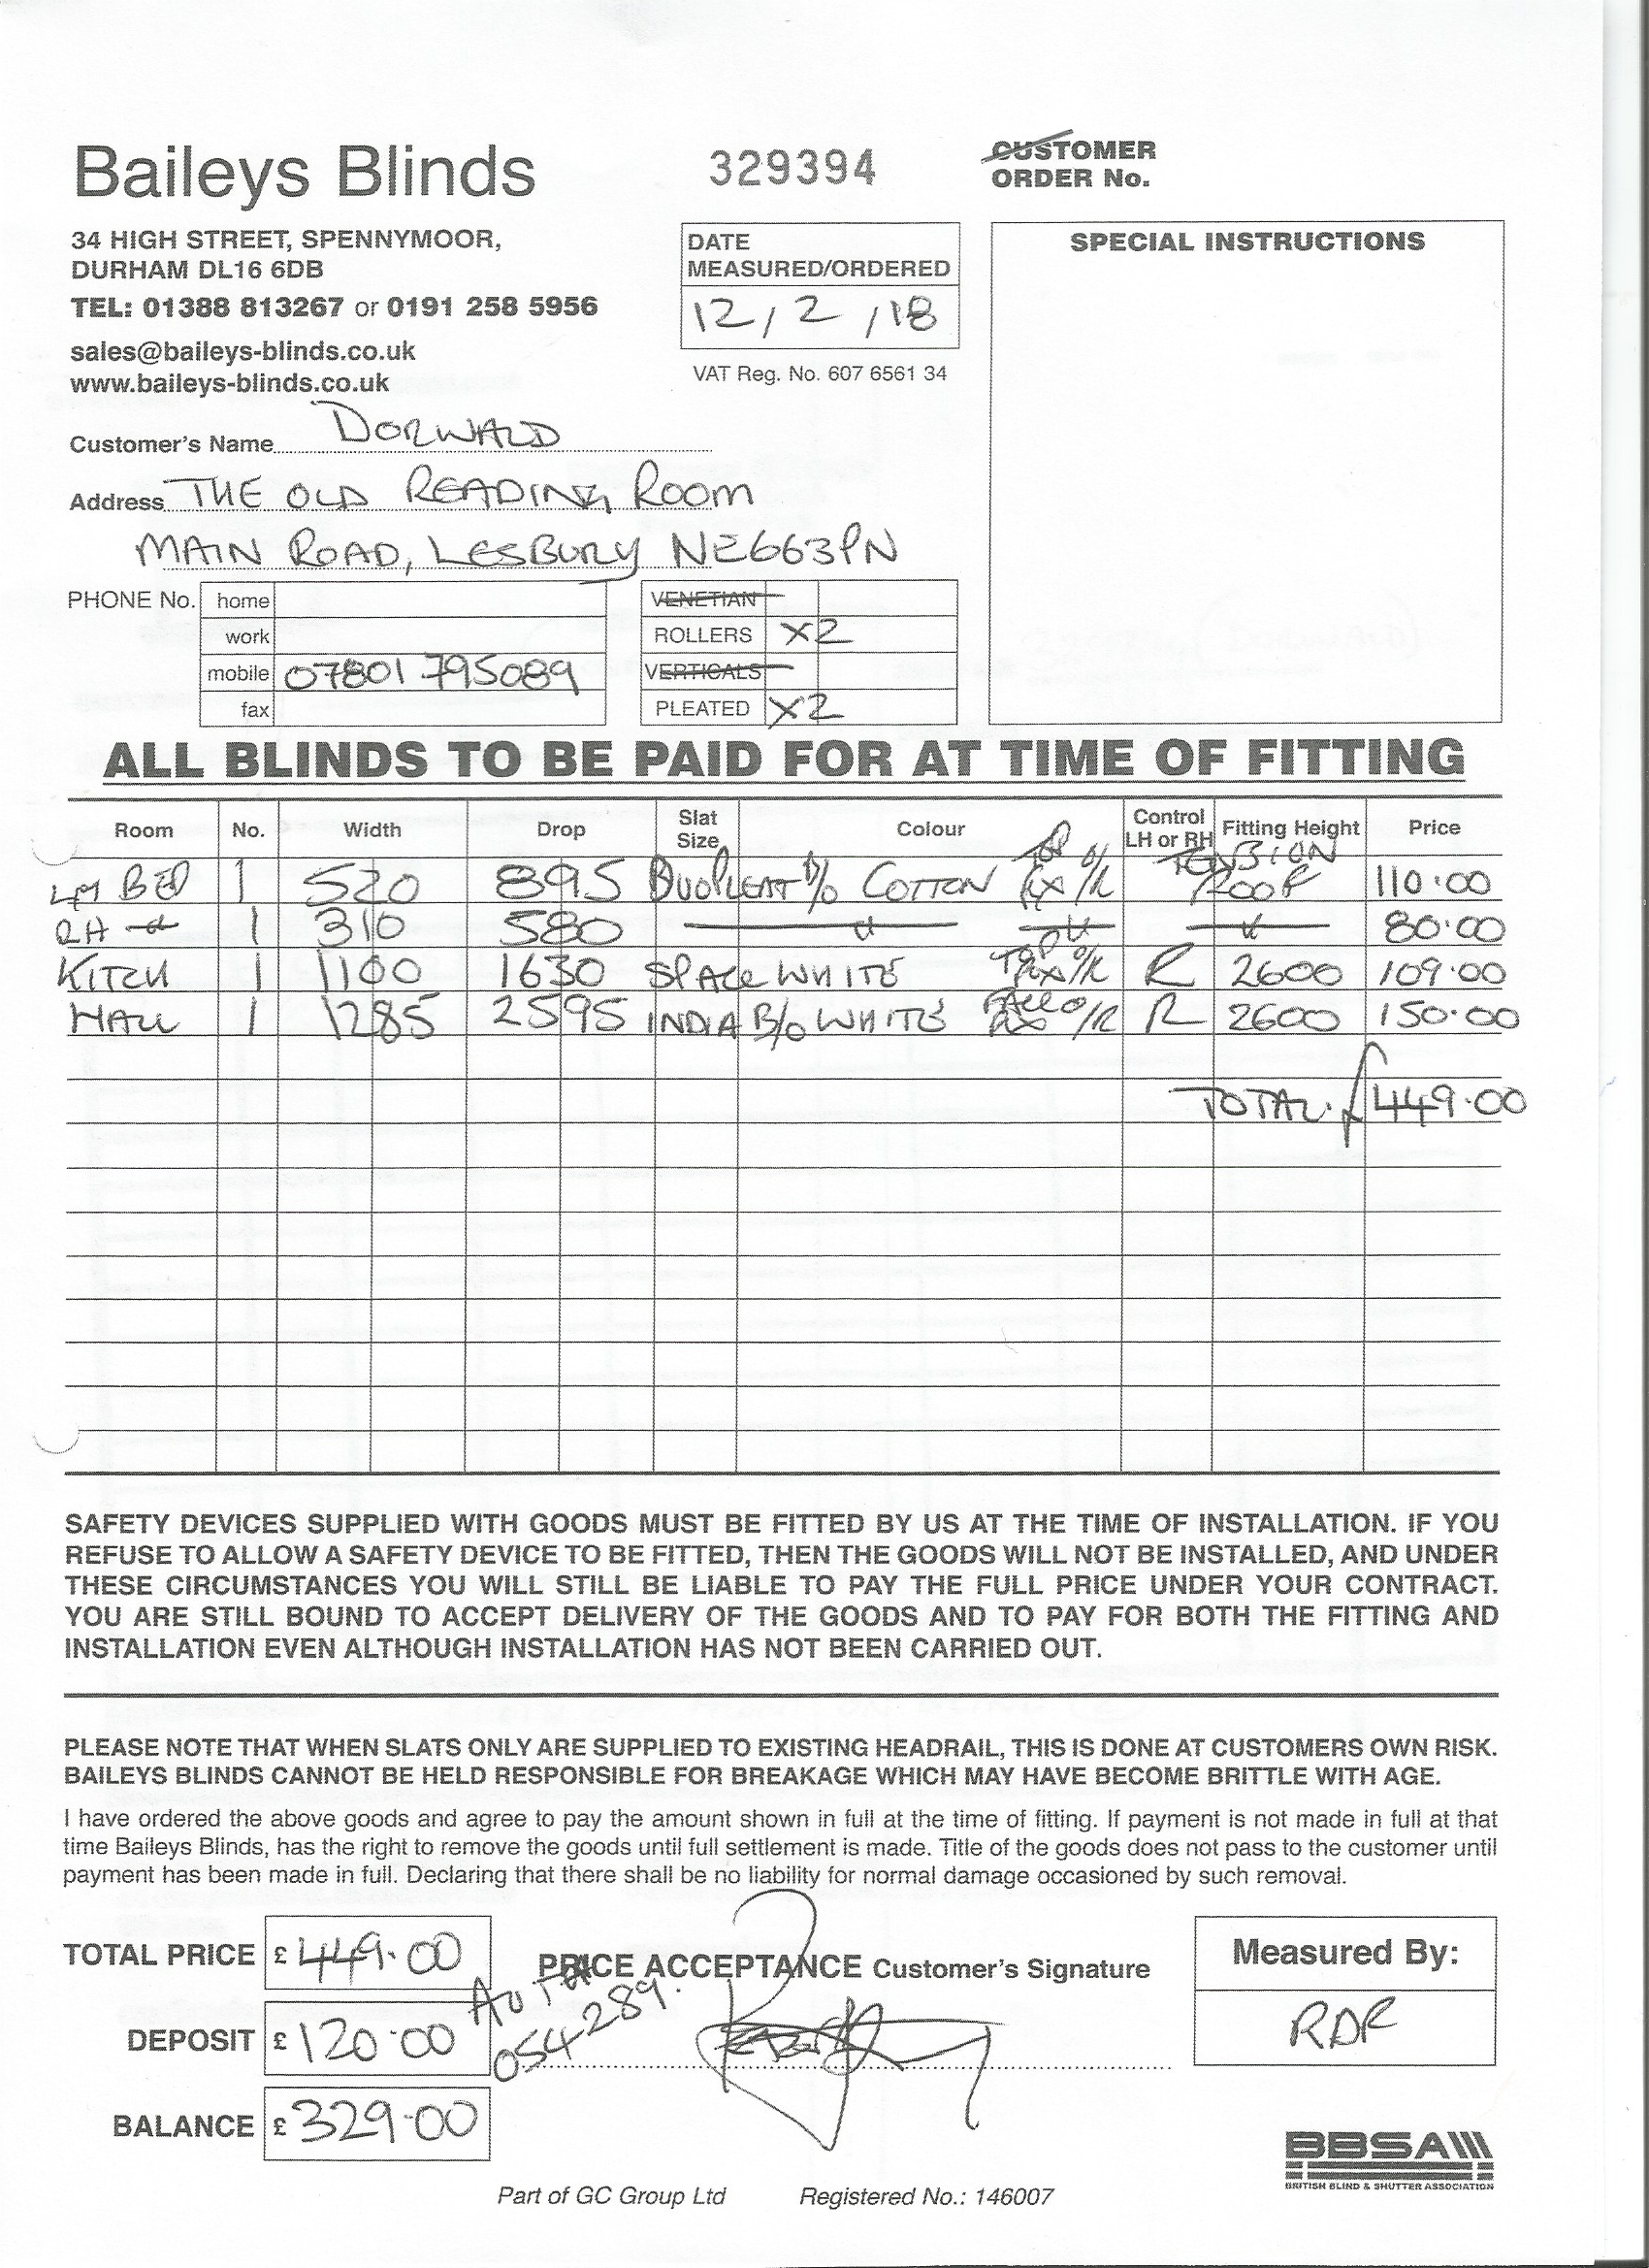 Baileys Blinds
329394
CUSTOMER
ORDER No.
34 HIGH STREET, SPENNYMOOR,
DURHAM DL16 6DB
TEL: 01388 813267 or 0191 258 5956
sales@baileys-blinds.co.uk
www.baileys-blinds.co.uk
DATE
MEASURED/ORDERED
12/2/18
VAT Reg. No. 607 6561 34
SPECIAL INSTRUCTIONS
Customer's Name DORWALD
Address THE OLD READING ROOM
MAIN ROAD, LESBURY NE663PN
PHONE No. home
work
mobile 07801 795089
fax
VENETIAN
ROLLERS X2
VERTICALS
PLEATED X2
ALL BLINDS TO BE PAID FOR AT TIME OF FITTING
Room No. Width Drop Slat Size Colour Control LH or RH Fitting Height Price
LH BED 1 520 895 DUOPLEAT B/O COTTON TOP FIX O/R TENSION ROOF 110.00
RH 1 310 580 80.00
KITCH 1 1100 1630 SPACE WHITE TOP FIX O/R R 2600 109.00
HALL 1 1285 2595 INDIA B/O WHITE FACE FIX O/R R 2600 150.00
TOTAL. £449.00
SAFETY DEVICES SUPPLIED WITH GOODS MUST BE FITTED BY US AT THE TIME OF INSTALLATION. IF YOU
REFUSE TO ALLOW A SAFETY DEVICE TO BE FITTED, THEN THE GOODS WILL NOT BE INSTALLED, AND UNDER
THESE CIRCUMSTANCES YOU WILL STILL BE LIABLE TO PAY THE FULL PRICE UNDER YOUR CONTRACT.
YOU ARE STILL BOUND TO ACCEPT DELIVERY OF THE GOODS AND TO PAY FOR BOTH THE FITTING AND
INSTALLATION EVEN ALTHOUGH INSTALLATION HAS NOT BEEN CARRIED OUT.
PLEASE NOTE THAT WHEN SLATS ONLY ARE SUPPLIED TO EXISTING HEADRAIL, THIS IS DONE AT CUSTOMERS OWN RISK.
BAILEYS BLINDS CANNOT BE HELD RESPONSIBLE FOR BREAKAGE WHICH MAY HAVE BECOME BRITTLE WITH AGE.
I have ordered the above goods and agree to pay the amount shown in full at the time of fitting. If payment is not made in full at that
time Baileys Blinds, has the right to remove the goods until full settlement is made. Title of the goods does not pass to the customer until
payment has been made in full. Declaring that there shall be no liability for normal damage occasioned by such removal.
TOTAL PRICE £ 449.00
PRICE ACCEPTANCE Customer's Signature
AUTH
054289.
DEPOSIT £ 120.00
BALANCE £ 329.00
Measured By:
RDR
BBSA
BRITISH BLIND & SHUTTER ASSOCIATION
Part of GC Group Ltd Registered No.: 146007